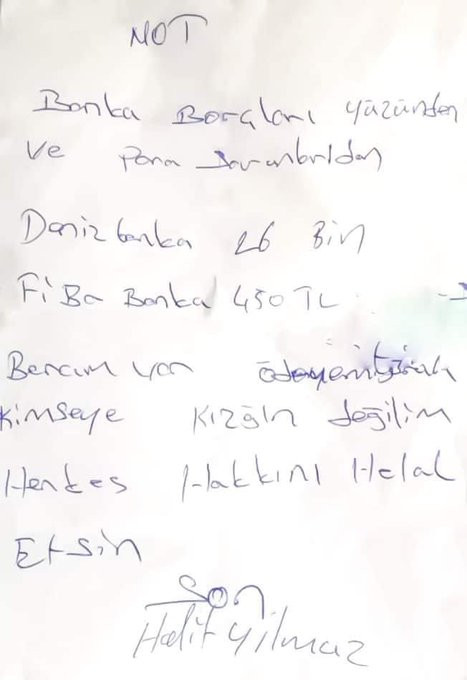 NOT
Banka Borçları yüzünden
ve Para
Denizbanka 26 Bin
FiBa Banka 450 TL
Borcum var
Kimseye Kızğın değilim
Herkes Hakkını Helal
Etsin
Son
Halit Yılmaz